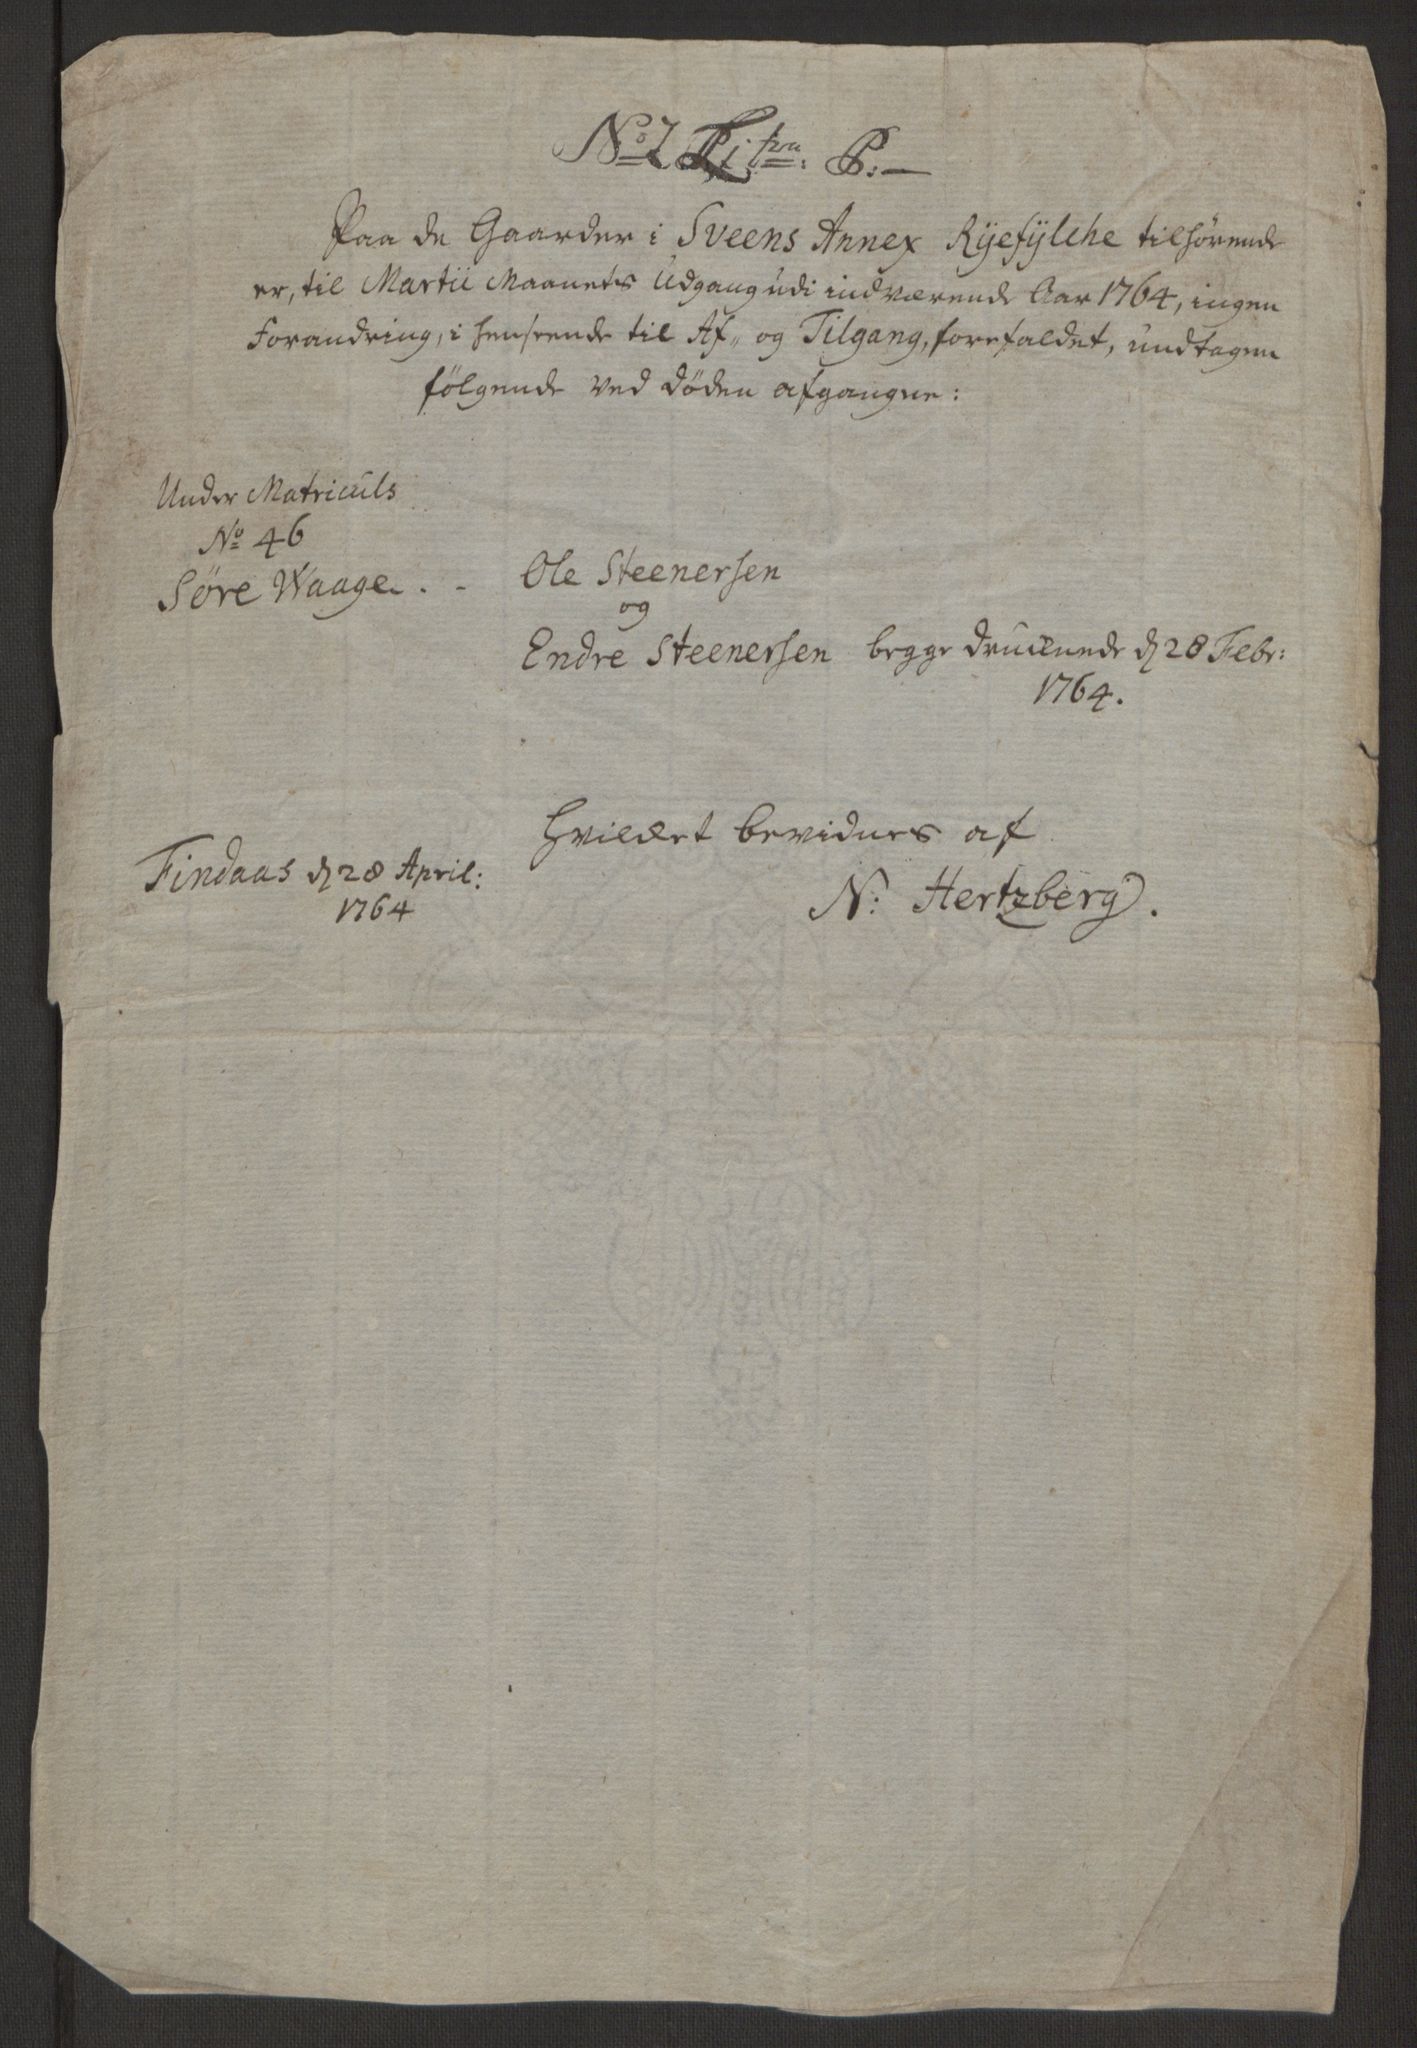 No 2 Litra: P: —
Paa de Gaarder i Sveens Annex Ryefylche tilhørende
er, til Martii Maanets Udgang udi indværende Aar 1764, ingen
Forandring, i henseende til Af- og Tilgang, forefaldet, undtagen
følgende ved døden afgangne:
Under Matriculs
No 46
Søre Waage . -
Ole Steenersen
og
Endre Steenersen begge druknede d 28 Febr:
1764.
Hvilket bevidnes af
Findaas d 28 April:
1764
N: Hertzberg.